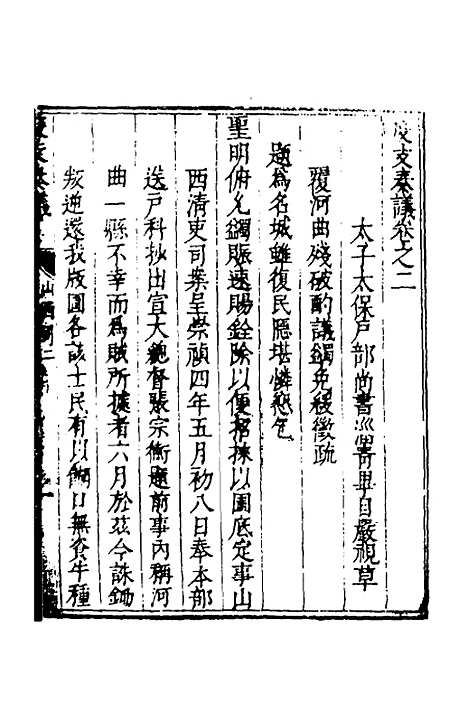 度支奏議卷之二
太子太保戶部尚書淄川畢自嚴視草
覆河曲殘破酌議蠲免緩徵疏
題為名城雖復民隱堪憐懇乞
聖明俯允蠲賑速賜銓除以便招徠以圖底定事山
西清吏司案呈崇禎四年五月初八日奉本部
送戶科抄出宣大總督張宗衡題前事內稱河
曲一縣不幸而為賊所據者六月於茲今誅鋤
叛逆還我版圖各該士民有以餬口無食牛種